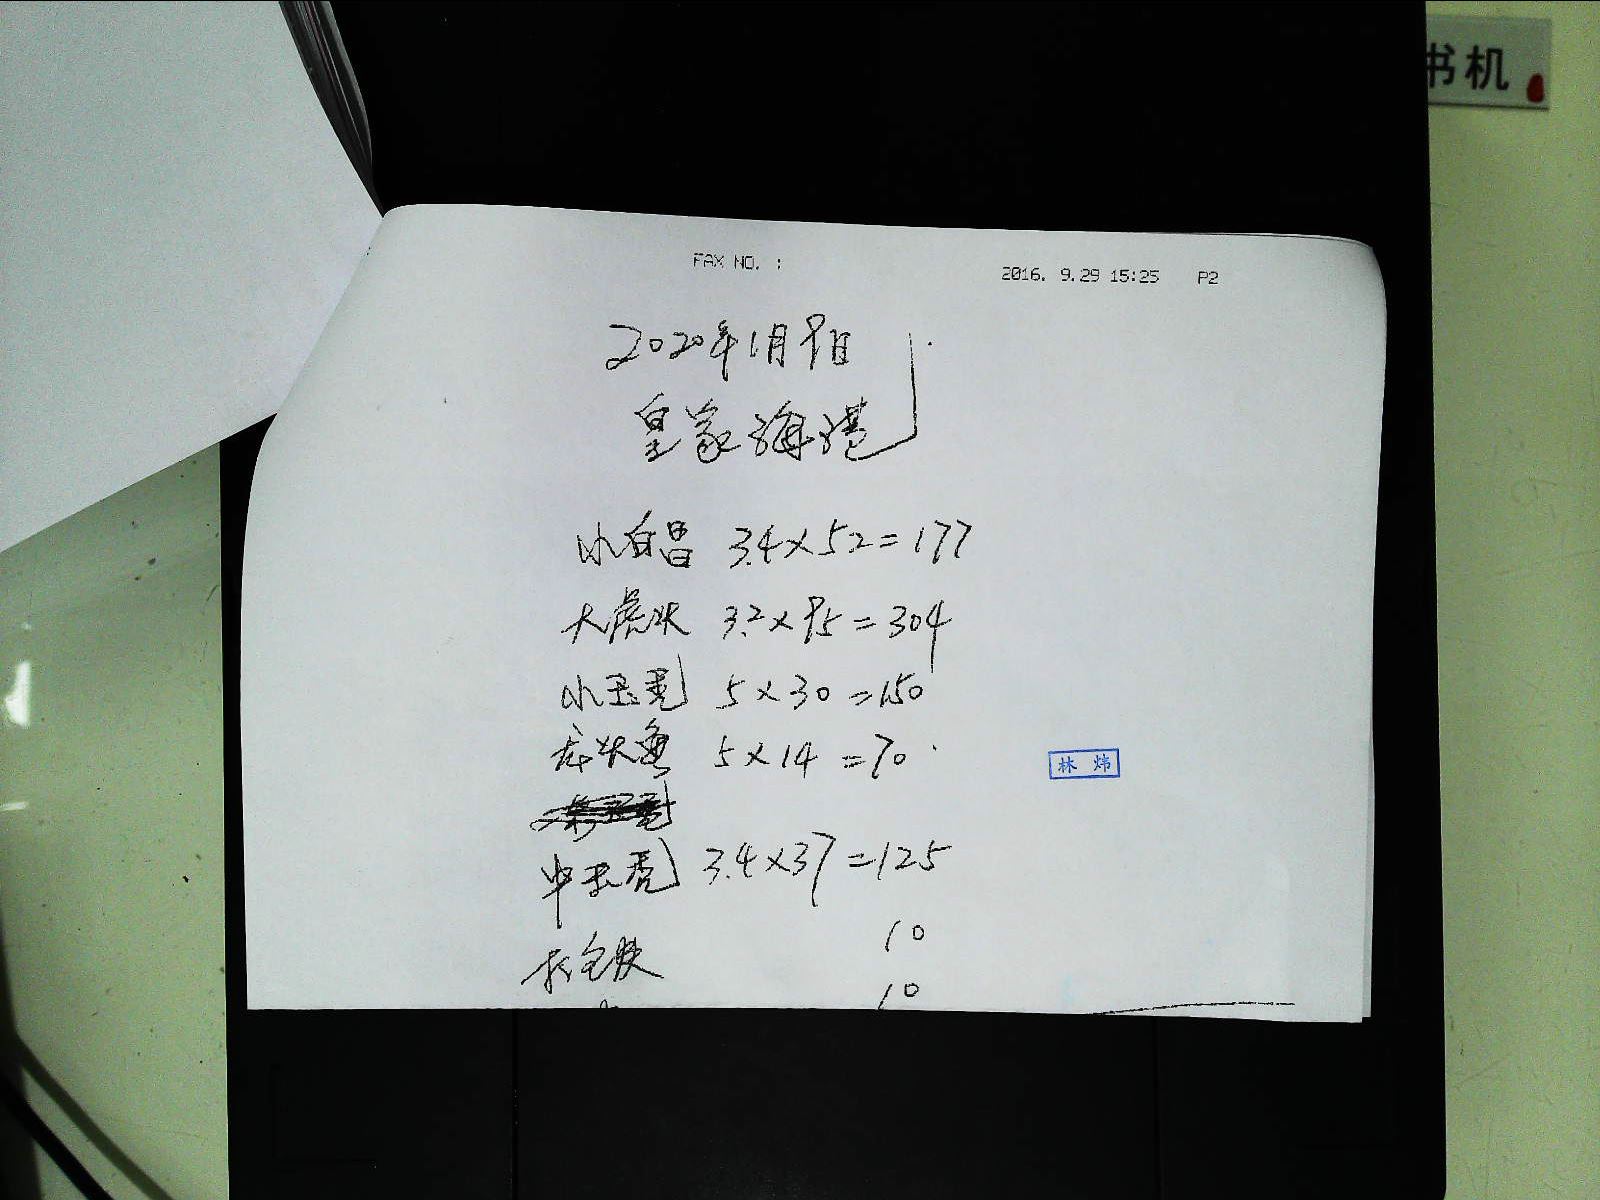 书机
FAX NO. :
2016. 9.29 15:25 P2
2020年1月9日
皇家海港
小白昌 3.4×52=177
大虎头 3.2×95=304
小玉秃 5×30=150
龙头鱼 5×14=70
林 炜
中玉秃 3.4×37=125
10
10